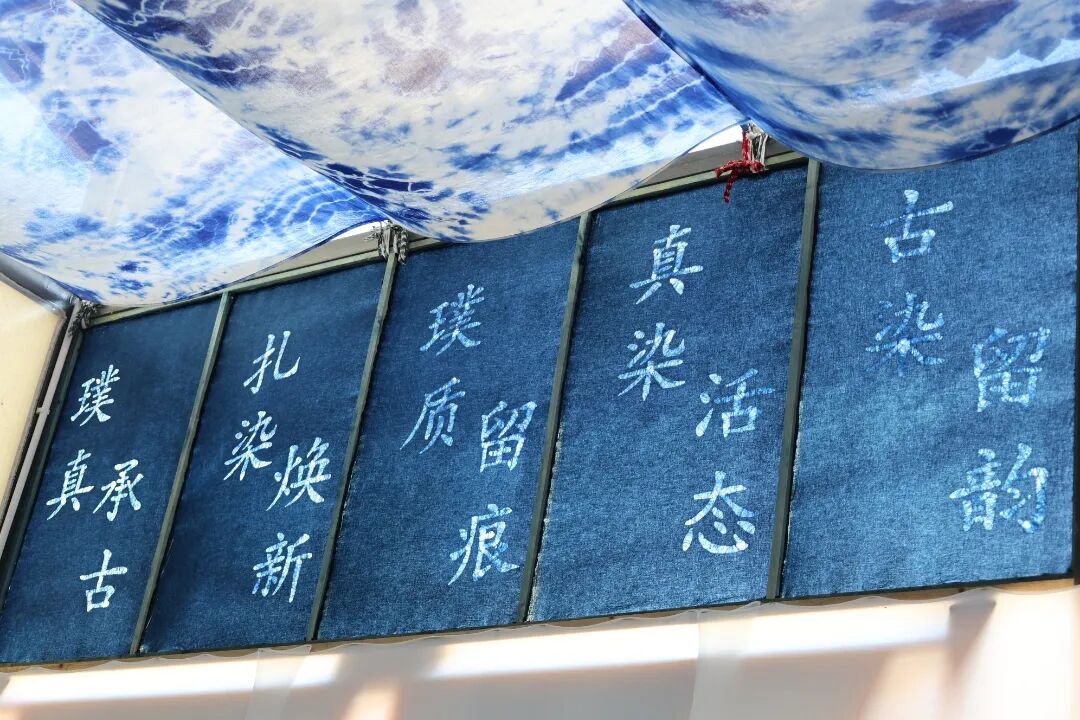 璞真承古
扎染焕新
璞质留痕
真染活态
古染留韵